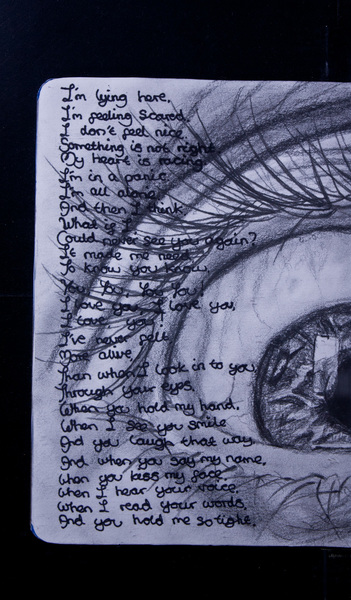 I'm lying here,
I'm feeling scared.
I don't feel nice
Something is not right
My heart is racing.
I'm in a panic
I'm all alone
And then I think
What is I
Could never see you again?
It made me need
To know you know,
You, love you;
I love you, I love you,
I love you!
I've never felt
more alive,
Than when I look in to you
Through your eyes.
When you hold my hand.
When I see you smile
And you laugh that way
And when you say my name,
When you kiss my face
When I hear your voice.
When I read your words.
And you hold me so tight.